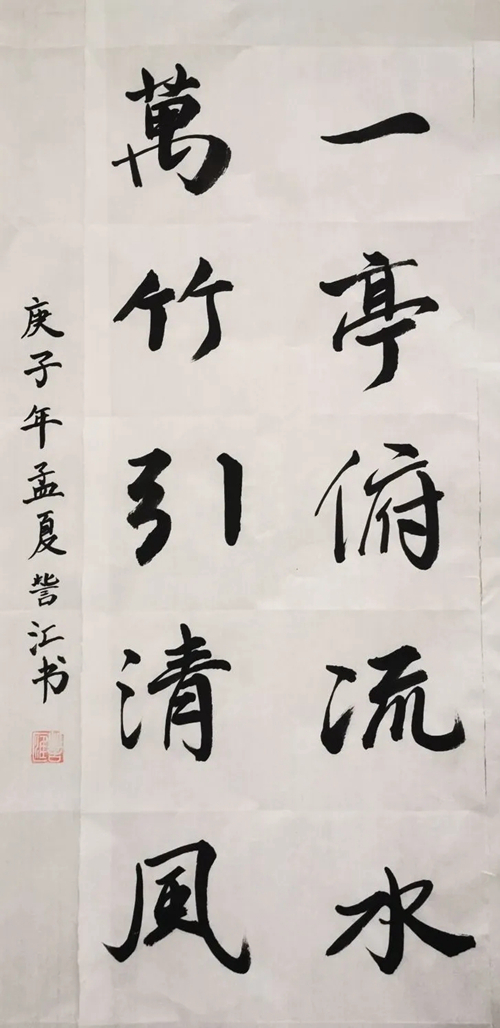 一亭俯流水
萬竹引清風
庚子年孟夏訾江书